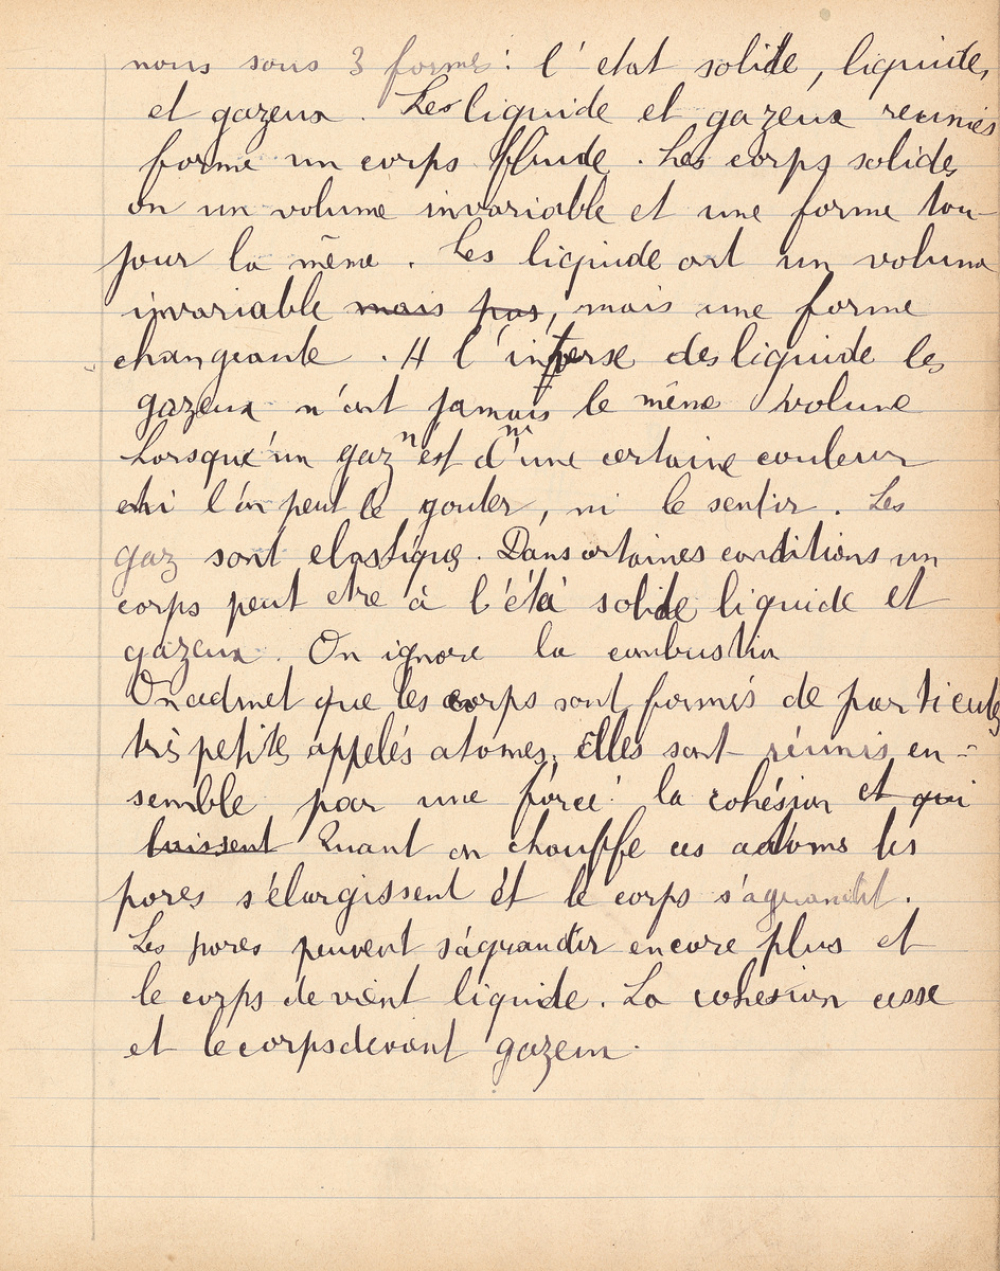 nous sous 3 forme : l'etat solide, liquide,
et gazeux. Les liquide et gazeux reunies
forme un corps fluide. Les corps solides
on un volume invariable et une forme tou-
jour la même. Les liquide ont un volume
invariable mais pas, mais une forme
changeante. A l'inverse des liquide les
gazeux n'ont jamais le même volume
Lorsqu'un gaz n'est ni d'une certaine couleur
ni l'on peut le gouter, ni le sentir. Les
gaz sont elastique. Dans certaines conditions un
corps peut etre à l'été solide liquide et
gazeux. On ignore la combustion
On admet que les corps sont formés de particules
très petites appelés atomes, elles sont réunis en-
semble par une force : la cohésion et qui
laissent Quant on chauffe ces atoms les
pores s'élargissent et le corps s'agrandit.
Les pores peuvent s'agrandir encore plus et
le corps devient liquide. La cohesion cesse
et le corps devont gazeux.